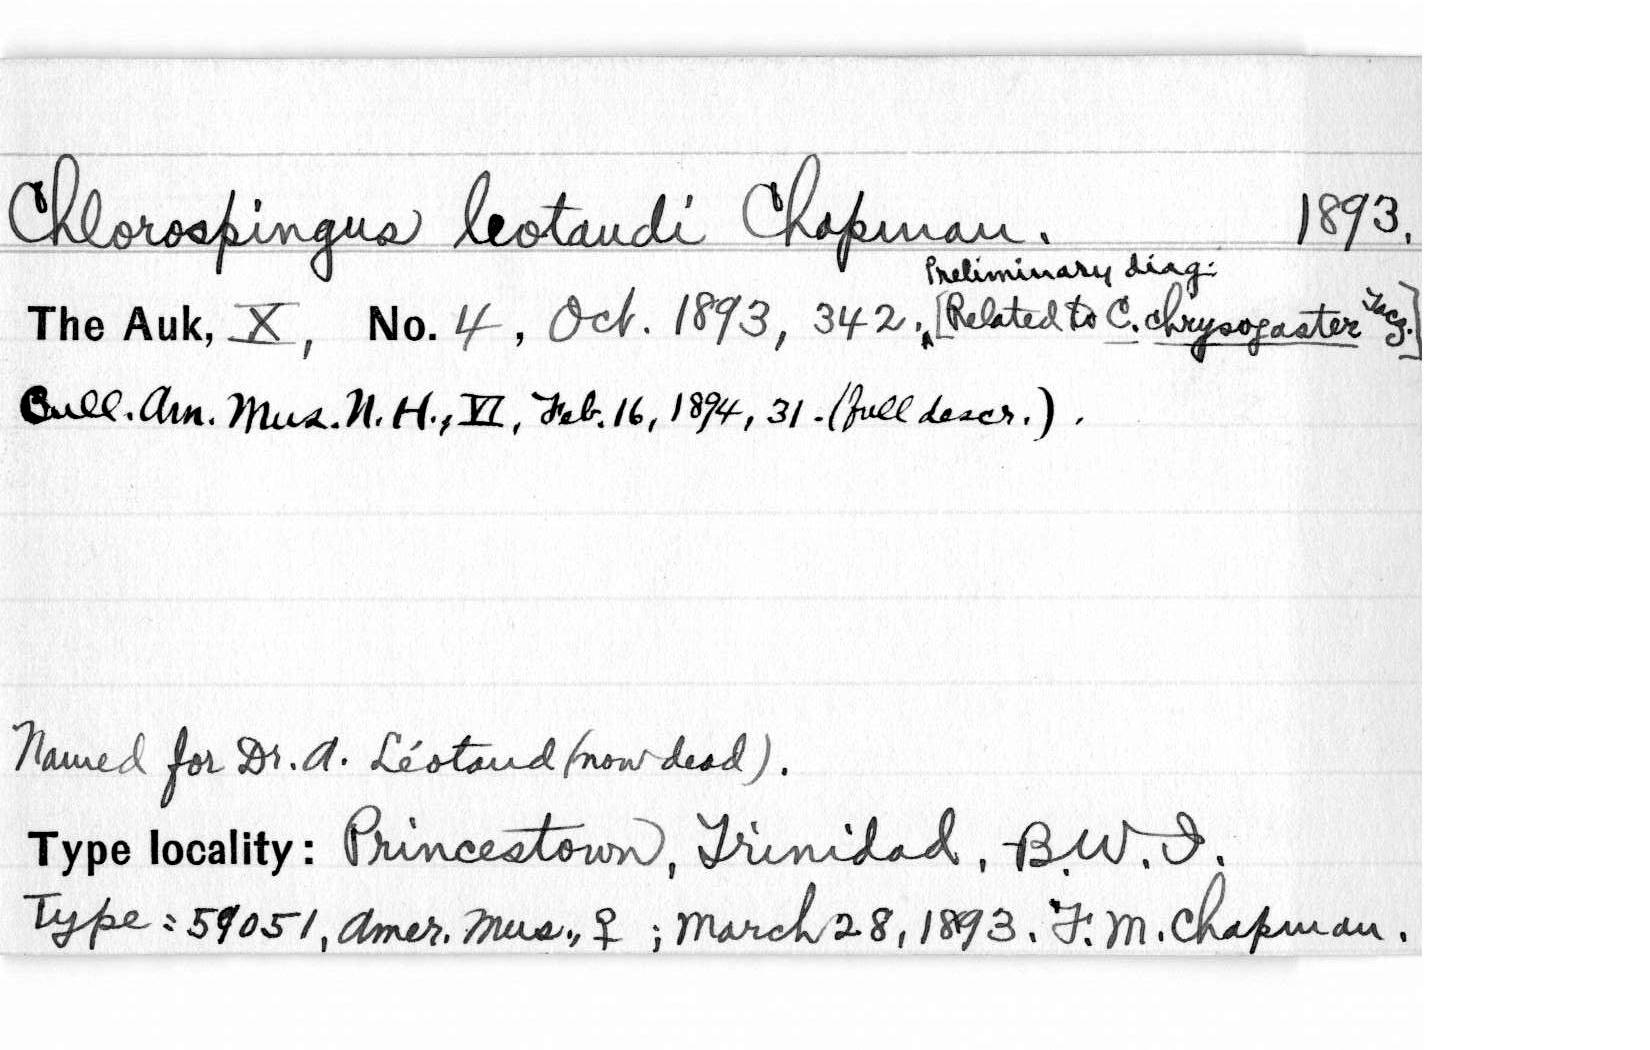 Chlorospingus leotaudi Chapman. 1893.
Preliminary diag:
The Auk, X, No. 4, Oct. 1893, 342. [Related to C. chrysogaster Tacz.]
Bull. Am. Mus. N. H., VI, Feb. 16, 1894, 31. (full descr.).
Named for Dr. A. Léotaud (now dead).
Type locality: Princestown, Trinidad, B.W.I.
Type: 59051, Amer. Mus., ♀; March 28, 1893. F. M. Chapman.